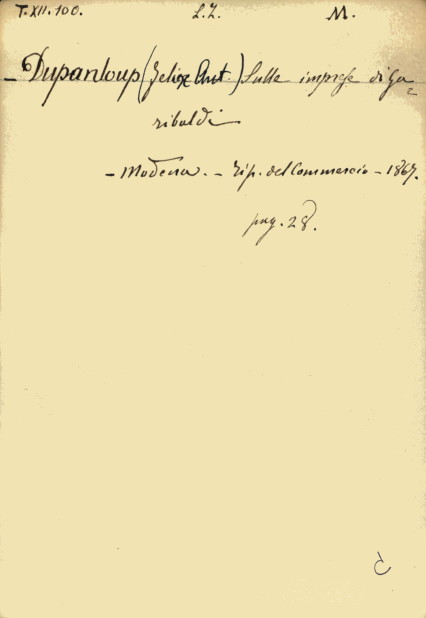 T. XII. 100. L. Z. M.
- Dupanloup (Felix Ant.) Sulle imprese di Ga=
ribaldi
- Modena. - Tip. del Commercio - 1867.
pag. 28.